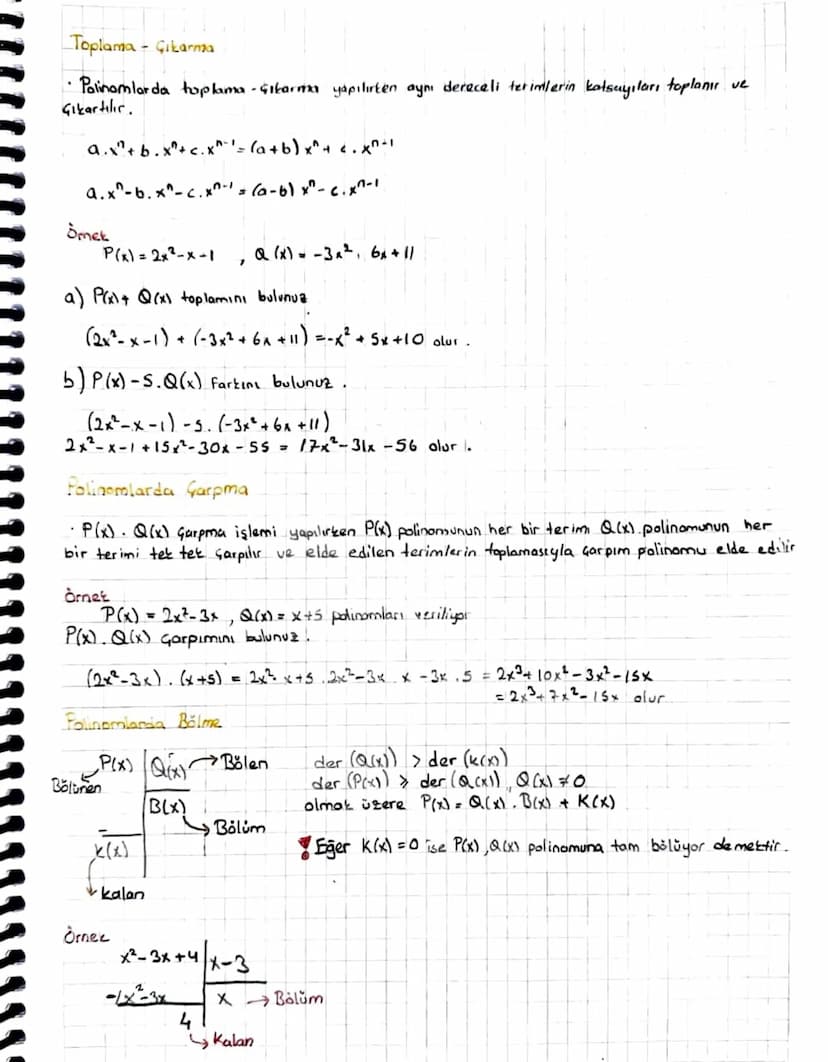 Toplama - Çıkarma
· Polinomlarda toplama - çıkarma yapılırken aynı dereceli terimlerin katsayıları toplanır ve
çıkartılır.
a.xⁿ + b.xⁿ + c.xⁿ⁻¹ = (a+b) xⁿ + c.xⁿ⁻¹
a.xⁿ - b.xⁿ - c.xⁿ⁻¹ = (a-b) xⁿ - c.xⁿ⁻¹
Örnek
P(x) = 2x² - x - 1 , Q(x) = -3x², 6x + 11
a) P(x) + Q(x) toplamını bulunuz
(2x² - x - 1) + (-3x² + 6x + 11) = -x² + 5x + 10 olur.
b) P(x) - 5.Q(x) farkını bulunuz.
(2x² - x - 1) - 5.(-3x² + 6x + 11)
2x² - x - 1 + 15x² - 30x - 55 = 17x² - 31x - 56 olur.
Polinomlarda Çarpma
· P(x) . Q(x) çarpma işlemi yapılırken P(x) polinomunun her bir terimi Q(x) polinomunun her
bir terimi tek tek çarpılır ve elde edilen terimlerin toplamasıyla çarpım polinomu elde edilir
Örnek
P(x) = 2x² - 3x , Q(x) = x + 5 polinomları veriliyor
P(x) . Q(x) çarpımını bulunuz.
(2x² - 3x) . (x + 5) = 2x². x + 5 . 2x² - 3x . x - 3x . 5 = 2x³ + 10x² - 3x² - 15x
= 2x³ + 7x² - 15x olur
Polinomlarda Bölme
P(x) Q(x) → Bölen der (Q(x)) > der (K(x))
Bölünen der (P(x)) ≥ der (Q(x)), Q(x) ≠ 0
B(x) olmak üzere P(x) = Q(x) . B(x) + K(x)
Bölüm
K(x) ! Eğer K(x) = 0 ise P(x), Q(x) polinomuna tam bölüyor demektir.
kalan
Örnek
x² - 3x + 4 x - 3
-x² - 3x x → Bölüm
4
Kalan